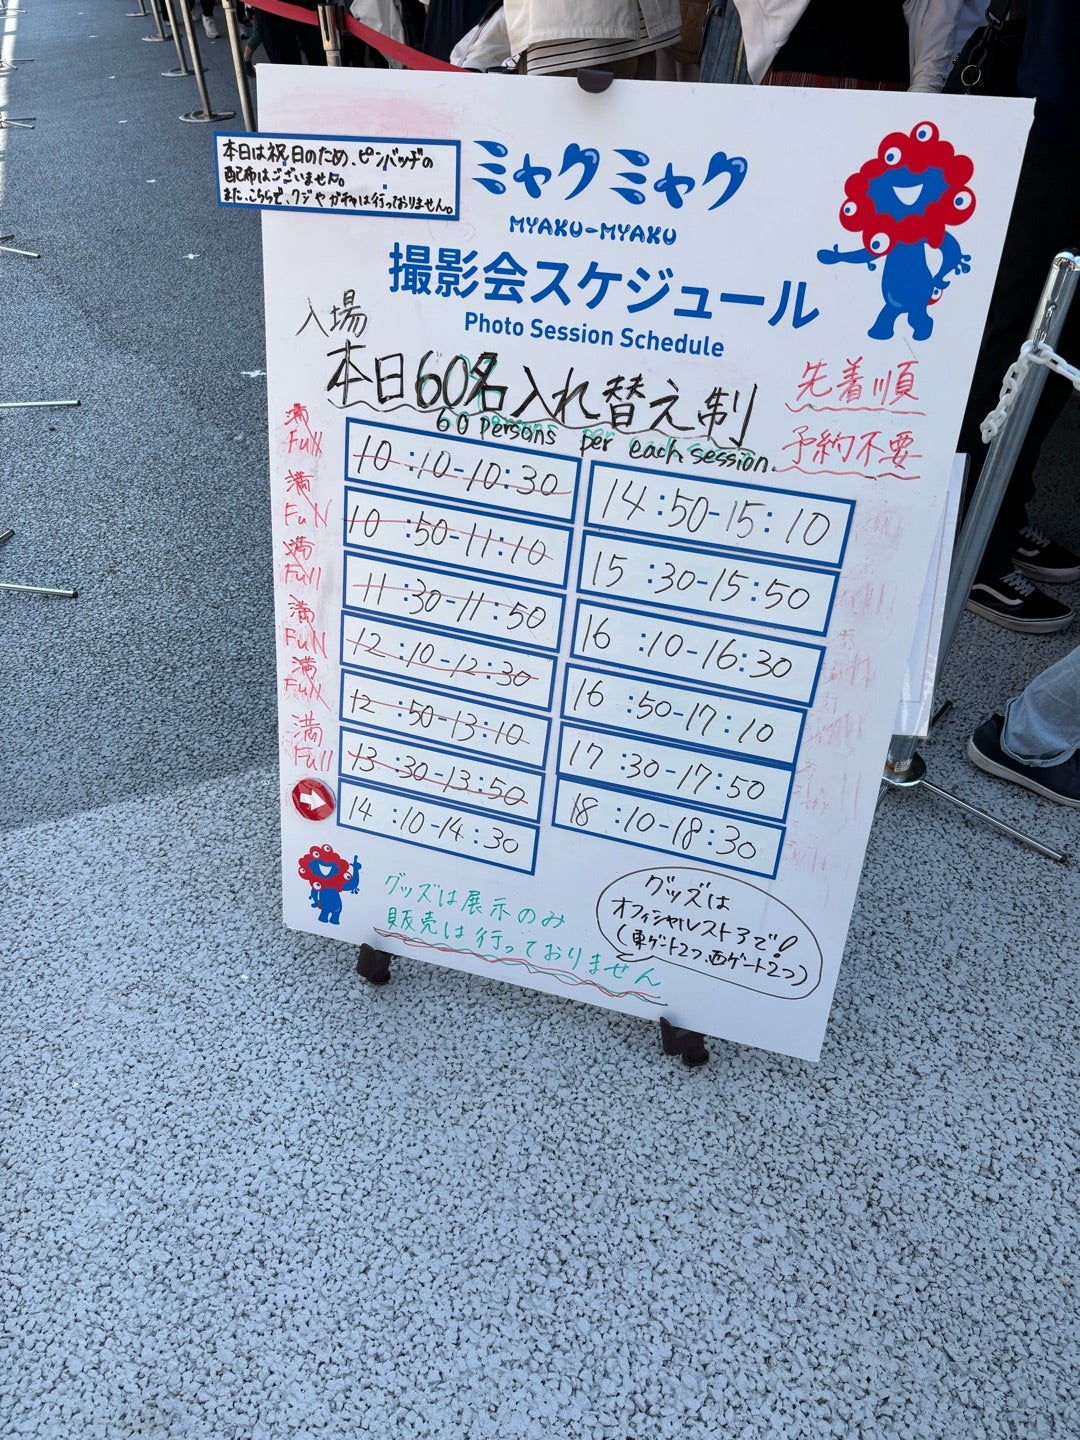 本日は祝日のため、ピンバッヂの
配布はございません。
また、こちらで、クジやガチャは行っておりません。
ミャクミャク
MYAKU-MYAKU
撮影会スケジュール
Photo Session Schedule
入場
本日60名入れ替え制
60 persons per each session.
先着順
予約不要
満
Full
10:10-10:30
満
Full
10:50-11:10
満
Full
11:30-11:50
満
Full
12:10-12:30
満
Full
12:50-13:10
満
Full
13:30-13:50
14:10-14:30
14:50-15:10
15:30-15:50
16:10-16:30
16:50-17:10
17:30-17:50
18:10-18:30
グッズは展示のみ
販売は行っておりません
グッズは
オフィシャルストアで!
(東ゲート2つ、西ゲート2つ)